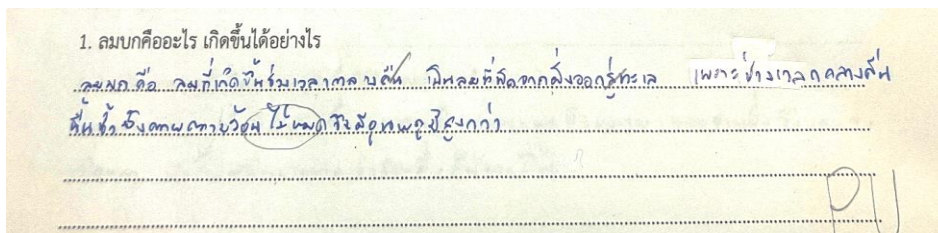 1. ลมบกคืออะไร เกิดขึ้นได้อย่างไร
ลมบก คือ ลมที่เกิดขึ้นช่วงเวลากลางคืน เป็นลมที่พัดจากฝั่งออกสู่ทะเล เพราะช่วงเวลากลางคืน
พื้นน้ำยังคายความร้อนไม่หมดจึงมีอุณหภูมิสูงกว่า
PU